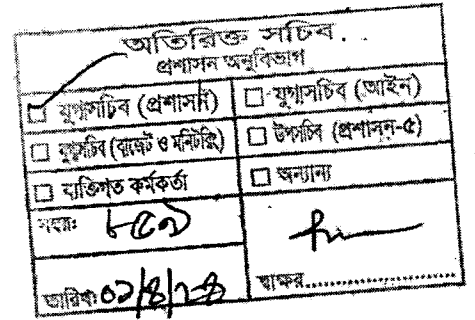 অতিরিক্ত সচিব
প্রশাসন অনুবিভাগ
□ যুগ্মসচিব (প্রশাসন) □ যুগ্মসচিব (আইন)
□ যুগ্মসচিব (বাজেট ও মনিটরিং) □ উপসচিব (প্রশাসন-৫)
□ ব্যক্তিগত কর্মকর্তা □ অন্যান্য
নম্বরঃ
তারিখঃ
স্বাক্ষর....................